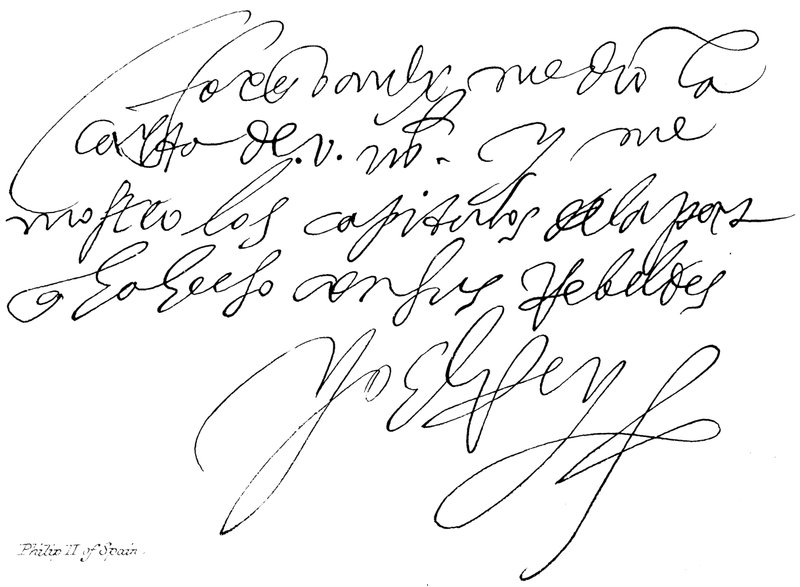 me dio la
carta de .v. m.d. y me
mostro los capitulos de la paz
q ha hecho con sus Rebeldes
Yo El Rey
Philip II of Spain.